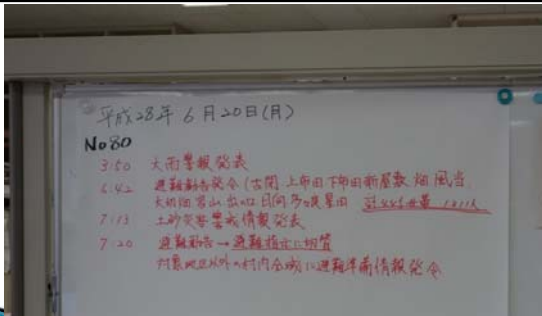 平成28年 6月20日(月)
No80
3:50 大雨警報発表
6:42 避難勧告発令(古閑 上布田 下布田 新屋敷 畑 風当
日向
7:13 土砂災害警戒情報発表
7:20 避難勧告→避難指示に切替
対象地区以外の村内全域に避難準備情報発令